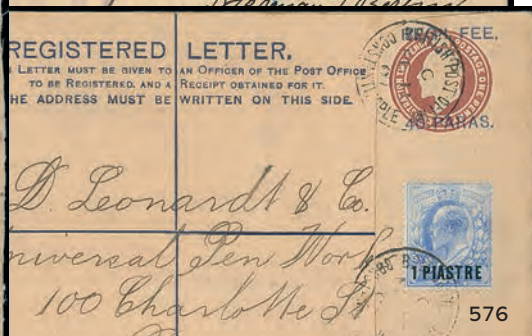 REG. FEE.
REGISTERED LETTER.
LETTER MUST BE GIVEN TO AN OFFICER OF THE POST OFFICE
TO BE REGISTERED, AND A RECEIPT OBTAINED FOR IT.
HE ADDRESS MUST BE WRITTEN ON THIS SIDE.
40 PARAS.
D. Leonardt & Co.
niversal Pen Work
100 Charlotte St
1 PIASTRE
576